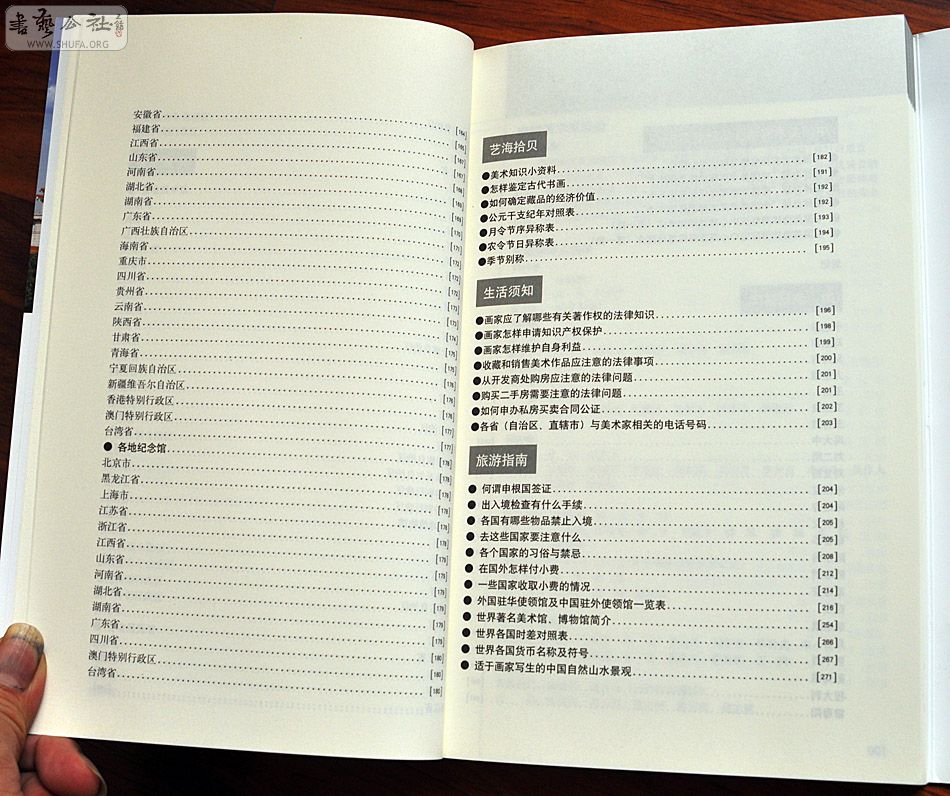 書藝公社
WWW.SHUFA.ORG
安徽省
福建省
江西省
山东省
河南省
湖北省
湖南省
广东省
广西壮族自治区
海南省
重庆市
四川省
贵州省
云南省
陕西省
甘肃省
青海省
宁夏回族自治区
新疆维吾尔自治区
香港特别行政区
澳门特别行政区
台湾省
● 各地纪念馆
北京市
黑龙江省
上海市
江苏省
浙江省
江西省
山东省
河南省
湖北省
湖南省
广东省
四川省
澳门特别行政区
台湾省
艺海拾贝
●美术知识小资料 [182]
●怎样鉴定古代书画 [191]
●如何确定藏品的经济价值 [192]
●公元干支纪年对照表 [192]
●月令节序异称表 [193]
●农令节日异称表 [194]
●季节别称 [195]
生活须知
●画家应了解哪些有关著作权的法律知识 [196]
●画家怎样申请知识产权保护 [198]
●画家怎样维护自身利益 [199]
●收藏和销售美术作品应注意的法律事项 [200]
●从开发商处购房应注意的法律问题 [201]
●购买二手房需要注意的法律问题 [201]
●如何申办私房买卖合同公证 [202]
●各省（自治区、直辖市）与美术家相关的电话号码 [203]
旅游指南
● 何谓申根国签证 [204]
● 出入境检查有什么手续 [204]
● 各国有哪些物品禁止入境 [205]
● 去这些国家要注意什么 [205]
● 各个国家的习俗与禁忌 [208]
● 在国外怎样付小费 [212]
● 一些国家收取小费的情况 [214]
● 外国驻华使领馆及中国驻外使领馆一览表 [216]
● 世界著名美术馆、博物馆简介 [254]
● 世界各国时差对照表 [266]
● 世界各国货币名称及符号 [267]
● 适于画家写生的中国自然山水景观 [271]